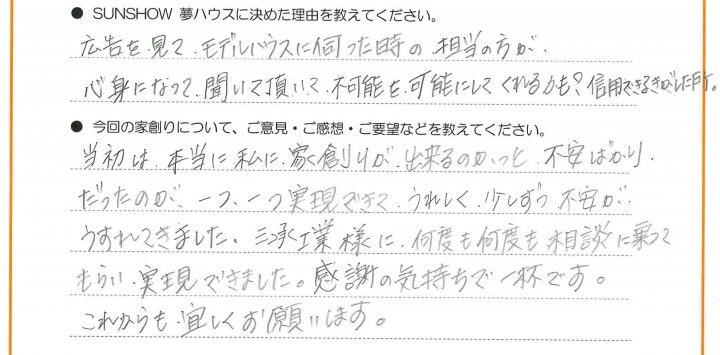 ● SUNSHOW 夢ハウスに決めた理由を教えてください。
広告を見て、モデルハウスに伺った時の担当の方が、
心身になって、聞いて頂いて、不可能を可能にしてくれるかも?信用できるきがした所。
● 今回の家創りについて、ご意見・ご感想・ご要望などを教えてください。
当初は、本当に私に、家創りが、出来るのかっと、不安ばかり、
だったのが、一つ、一つ実現できて、うれしく、少しずつ不安が
うすれてきました。三承工業様に、何度も何度も相談に乗って
もらい、実現できました。感謝の気持ちで一杯です。
これからも、宜しくお願いします。